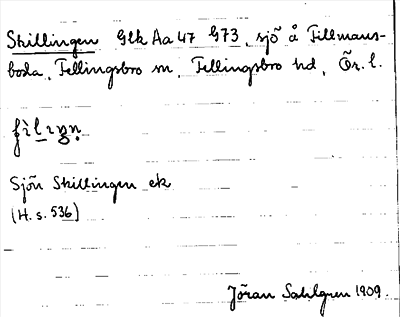 Skillingen GLk Aa 47 G73, sjö å Fillmans-
boda, Fellingsbro sn, Fellingsbro hd, Ör. l.
Sjön Skillingen ek
(H. s. 536)
Jöran Sahlgren 1909.